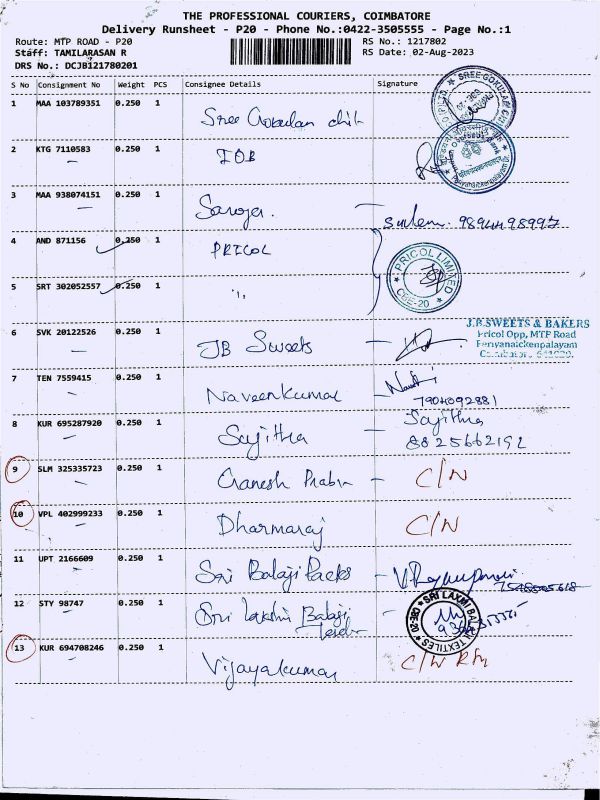 THE PROFESSIONAL COURIERS, COIMBATORE
Delivery Runsheet - P20 - Phone No.:0422-3505555 - Page No.:1
Route: MTP ROAD - P20
RS No.: 1217802
Staff: TAMILARASAN R
RS Date: 02-Aug-2023
DRS No.: DCJB121780201
S No Consignment No Weight PCS Consignee Details Signature
1 MAA 103789351 0.250 1 Sree Gokulam chit
2 KTG 7110583 0.250 1 IOB
3 MAA 938074151 0.250 1 Saroja. 9894498997
4 AND 871156 0.250 1 PRICOL
PRICOL LIMITED
CBE-20
5 SRT 302052557 0.250 1 "
6 SVK 20122526 0.250 1 JB Sweets
J.B.SWEETS & BAKERS
Pricol Opp, MTP Road
Periyanaickenpalayam
7 TEN 7559415 0.250 1 Naveenkumar
7904092881
8 KUR 695287920 0.250 1 Sajitha Sajitha
8825662192
9 SLM 325335723 0.250 1 Ganesh Prabu - C/N
10 VPL 402999233 0.250 1 Dharmaraj C/N
11 UPT 2166609 0.250 1 Sri Balaji Packs
12 STY 98747 0.250 1 Sri Lakshmi Balaji
SRI LAXMI BALAJI TEXTILES
CBE-20
13 KUR 694708246 0.250 1 Vijayakumar C/N